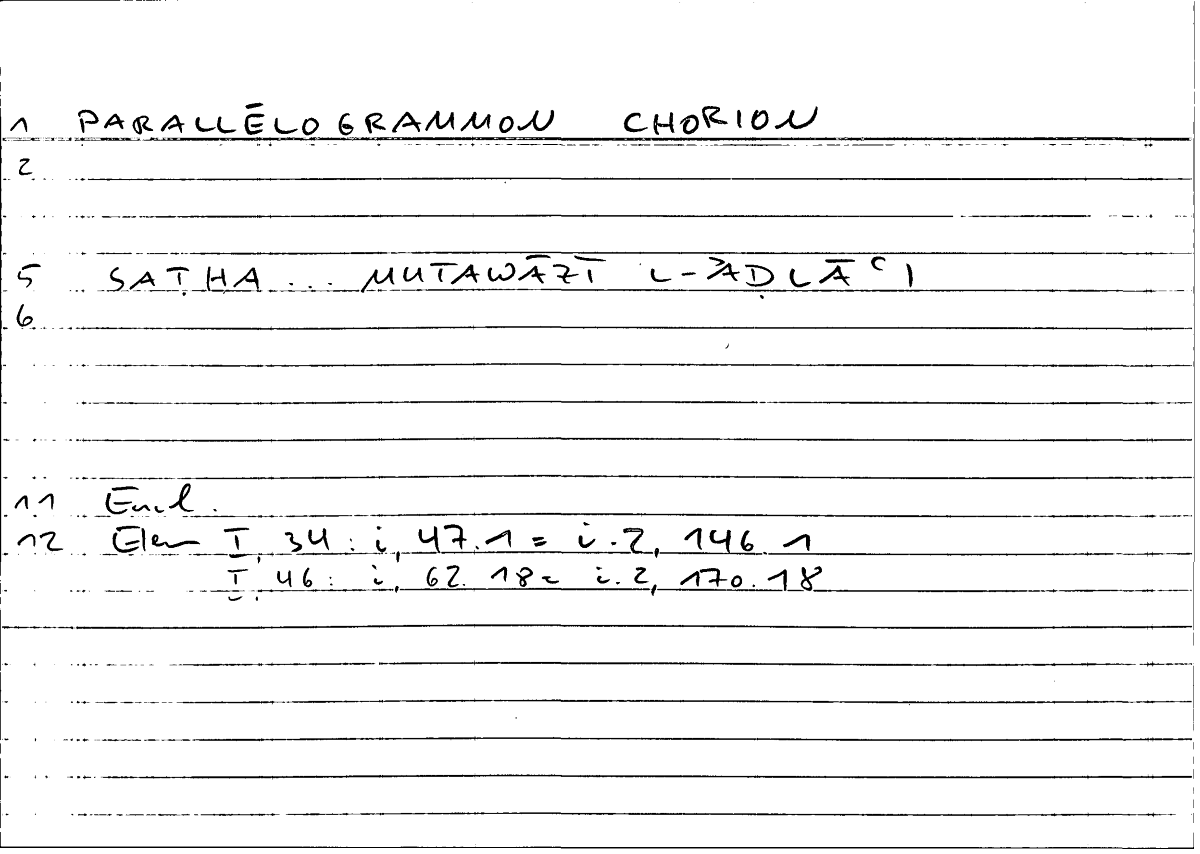 1 PARALLĒLOGRAMMON CHORION
2
5 SAṬḤA ... MUTAWĀZĪ L-ʾAḌLĀʿI
6
11 Eucl.
12 Elem I, 34 : i, 47.1 = i.2, 146.1
I, 46 : i, 62.18 = i.2, 170.18